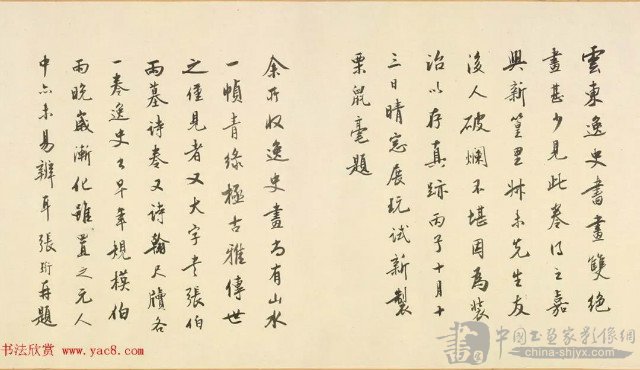 雲東逸史書畫雙絕
畫甚少見此卷得之嘉
興新篁里姊未先生友
後人破爛不堪因為裝
治以存真跡丙子十月十
三日晴窓展玩試新製
栗鼠毫題
余所收逸史畫尚有山水
一幀青綠極古雅傳世
之僅見者又大字書張伯
雨墓詩卷又詩翰尺牘各
一卷逸史書早年規模伯
雨晚歲漸化雖置之元人
中亦未易辨耳張珩再題
书法欣赏
www.yac8.com
中国书画家影像網
china-shjyx.com